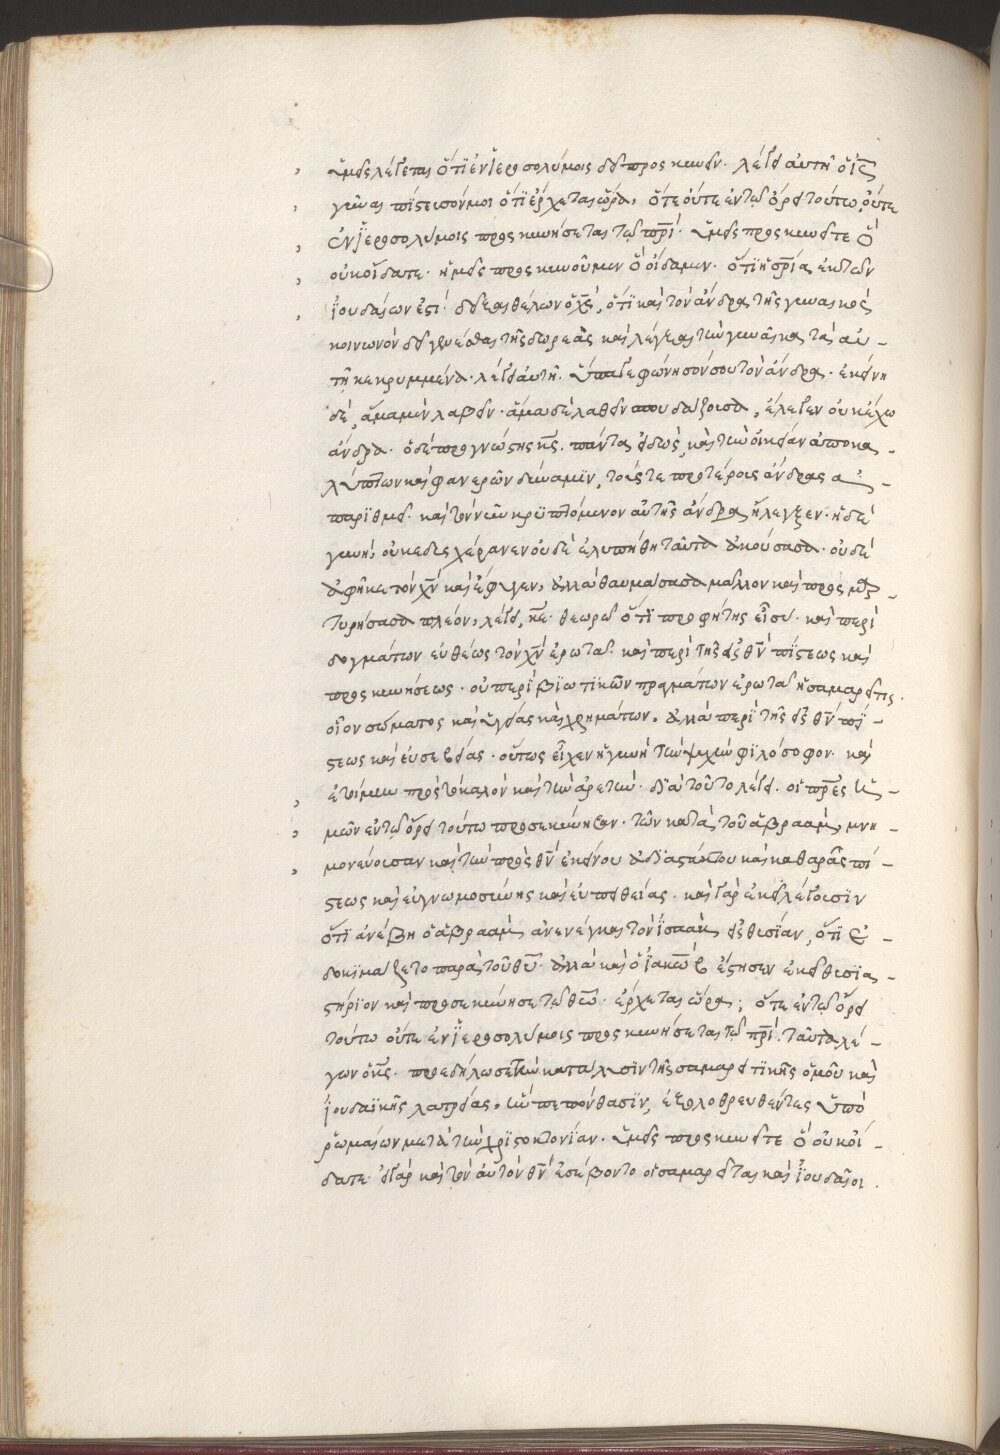 ὑμεῖς λέγεται ὅτι ἐν ἱεροσολύμοις δεῖ προσκυνεῖν. λέγει αὐτῆ ὁ ἰς
γύναι πίστευσόν μοι ὅτι ἔρχεται ὥρα, ὅτε οὔτε ἐν τῶ ὄρει τούτω, οὔτε
ἐν ἱεροσολύμοις προσκυνήσεται τῶ πρί. ὑμεῖς προσκυνεῖτε ὃ
οὐκ οἴδατε. ἡμεῖς προσκυνοῦμεν ὃ οἴδαμεν. ὅτι ἡ σρία ἐκ τῶν
ἰουδαίων ἐστί. θέλων ὁ χς, ὅτι καὶ τὸν ἄνδρα τῆς γυναικὸς
κοινωνὸν γενέσθαι τῆς δωρεᾶς καὶ λέγει τὴν γυναῖκα τὰ αὐ-
τῆ κεκρυμμένα. λέγει αὐτῆ. ὕπαγε φώνησόν σου τὸν ἄνδρα. ἐκείνη
δὲ, ἅμα μὲν λαβεῖν. ἅμα δὲ λαθεῖν σπουδάζουσα, ἔλεγεν οὐκ ἔχω
ἄνδρα. ὁ δὲ προγνώστης κς. πάντα εἰδὼς, καὶ τὴν οἰκείαν ἀποκα-
λύπτων καὶ φανερῶν δύναμιν, τούς τε προτέρους ἄνδρας ἀ-
παριθμεῖ. καὶ τὸν νῦν κρυπτόμενον αὐτῆς ἄνδρα ἤλεγξεν. ἡ δὲ
γυνὴ, οὐκ ἐδυσχέρανεν οὐδὲ ἐλυπήθη ταῦτα ἀκούσασα. οὐδὲ
ἀφῆκε τὸν χν καὶ ἔφυγεν, ἀλλὰ θαυμάσασα μᾶλλον καὶ προσμαρ-
τυρήσασα πλέον, λέγει, κε. θεωρῶ ὅτι προφήτης εἶ σύ. καὶ περὶ
δογμάτων εὐθέως τὸν χν ἐρωτᾶ. καὶ περὶ τῆς εἰς θν πίστεως καὶ
προσκυνήσεως. οὐ περὶ βιωτικῶν πραγμάτων ἐρωτᾶ ἡ σαμαρεῖτις.
οἷον σώματος καὶ ὑγείας καὶ χρημάτων. ἀλλὰ περὶ τῆς εἰς θν πί-
στεως καὶ εὐσεβείας. οὕτως εἶχεν ἡ γυνὴ τὴν ψυχὴν φιλόσοφον. καὶ
πρὸς τὸ καλὸν καὶ τὴν ἀρετήν. διὰ τοῦτο λέγει. οἱ πρες ἡ-
μῶν ἐν τῶ ὄρει τούτω προσεκύνησαν. τῶν κατὰ τοῦ ἀβραὰμ, μνη-
μονεύουσαν καὶ τὴν πρὸς θν ἐκείνου ἀδιαστάκτου καὶ καθαρᾶς πί-
στεως καὶ εὐγνωμοσύνης καὶ εὐπειθείας. καὶ γὰρ ἐκεῖ λέγουσιν
ὅτι ἀνέβη ὁ ἀβραὰμ ἀνενέγκαι τὸν ἰσαὰκ εἰς θυσίαν, ὅτι ἐ-
δοκιμάζετο παρὰ τοῦ θυ. ἀλλὰ καὶ ὁ ἰακὼβ ἔστησεν ἐκεῖ θυσια-
στήριον καὶ προσεκύνησε τῶ θεῶ. ἔρχεται ὥρα; ὅτε ἐν τῶ ὄρει
τούτω οὔτε ἐν ἱεροσολύμοις προσκυνήσεται τῶ πρί. ταῦτα λέ-
γων ὁ κς. προεδήλωσε τὴν κατάλυσιν τῆς σαμαρειτικῆς ὁμοῦ καὶ
ἰουδαϊκῆς λατρείας, ἣν πεπόνθασιν, ἐξολοθρευθέντες ὑπὸ
ῥωμαίων μετὰ τὴν χριστοκτονίαν. ὑμεῖς προσκυνεῖτε ὃ οὐκ οἴ-
δατε. εἰ γὰρ καὶ τὸν αὐτὸν θν ἐσέβοντο οἱ σαμαρεῖται καὶ ἰουδαῖοι.